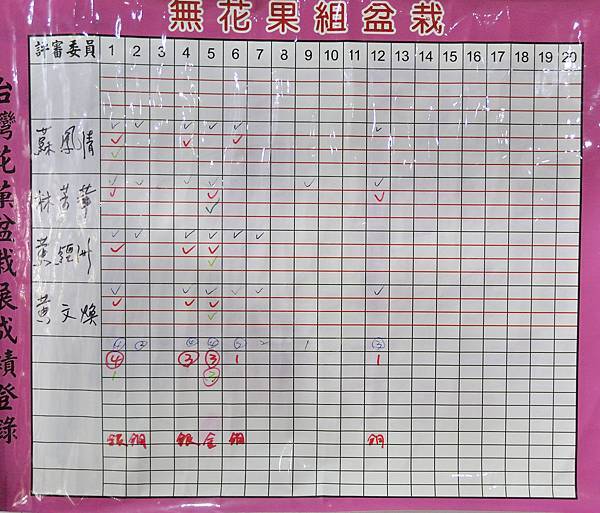 無花果組盆栽
台灣花菓盆栽展成績登錄
評審委員 1 2 3 4 5 6 7 8 9 10 11 12 13 14 15 16 17 18 19 20
✓ ✓ ✓ ✓ ✓ ✓
蘇鳳情 ✓ ✓ ✓
✓
✓ ✓ ✓ ✓ ✓ ✓
林芳華 ✓ ✓ ✓
✓
✓ ✓ ✓ ✓ ✓ ✓
✓ ✓ ✓
✓
✓ ✓ ✓ ✓ ✓ ✓ ✓
黃文煥 ✓ ✓ ✓
✓
④ ④ ④ 2 1 ③
④ ③ ③ 1 1
1
銀 銅 銀 金 銅 銅